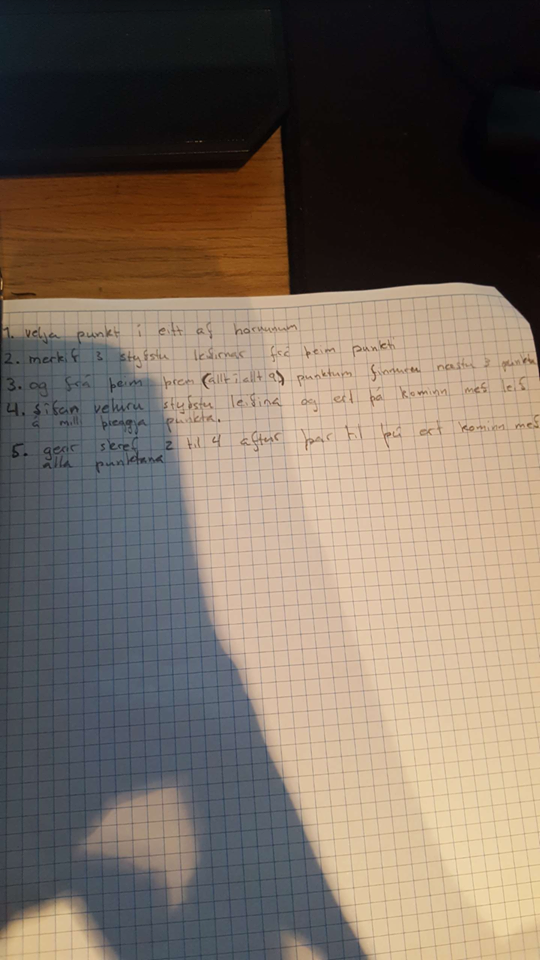 1. velja punkt i eitt af hornunum
2. merkir 3 styðstu leðirnar frá þeim punkti
3. og frá þeim þrem (allt i allt 9) punktum finnuru næstu 3 punkta
4. siðan veluru styðstu leiðina og ert þá kominn með leið
á milli þrengja punkta.
5. gerir skref 2 til 4 aftur þar til þú ert kominn með
alla punktana